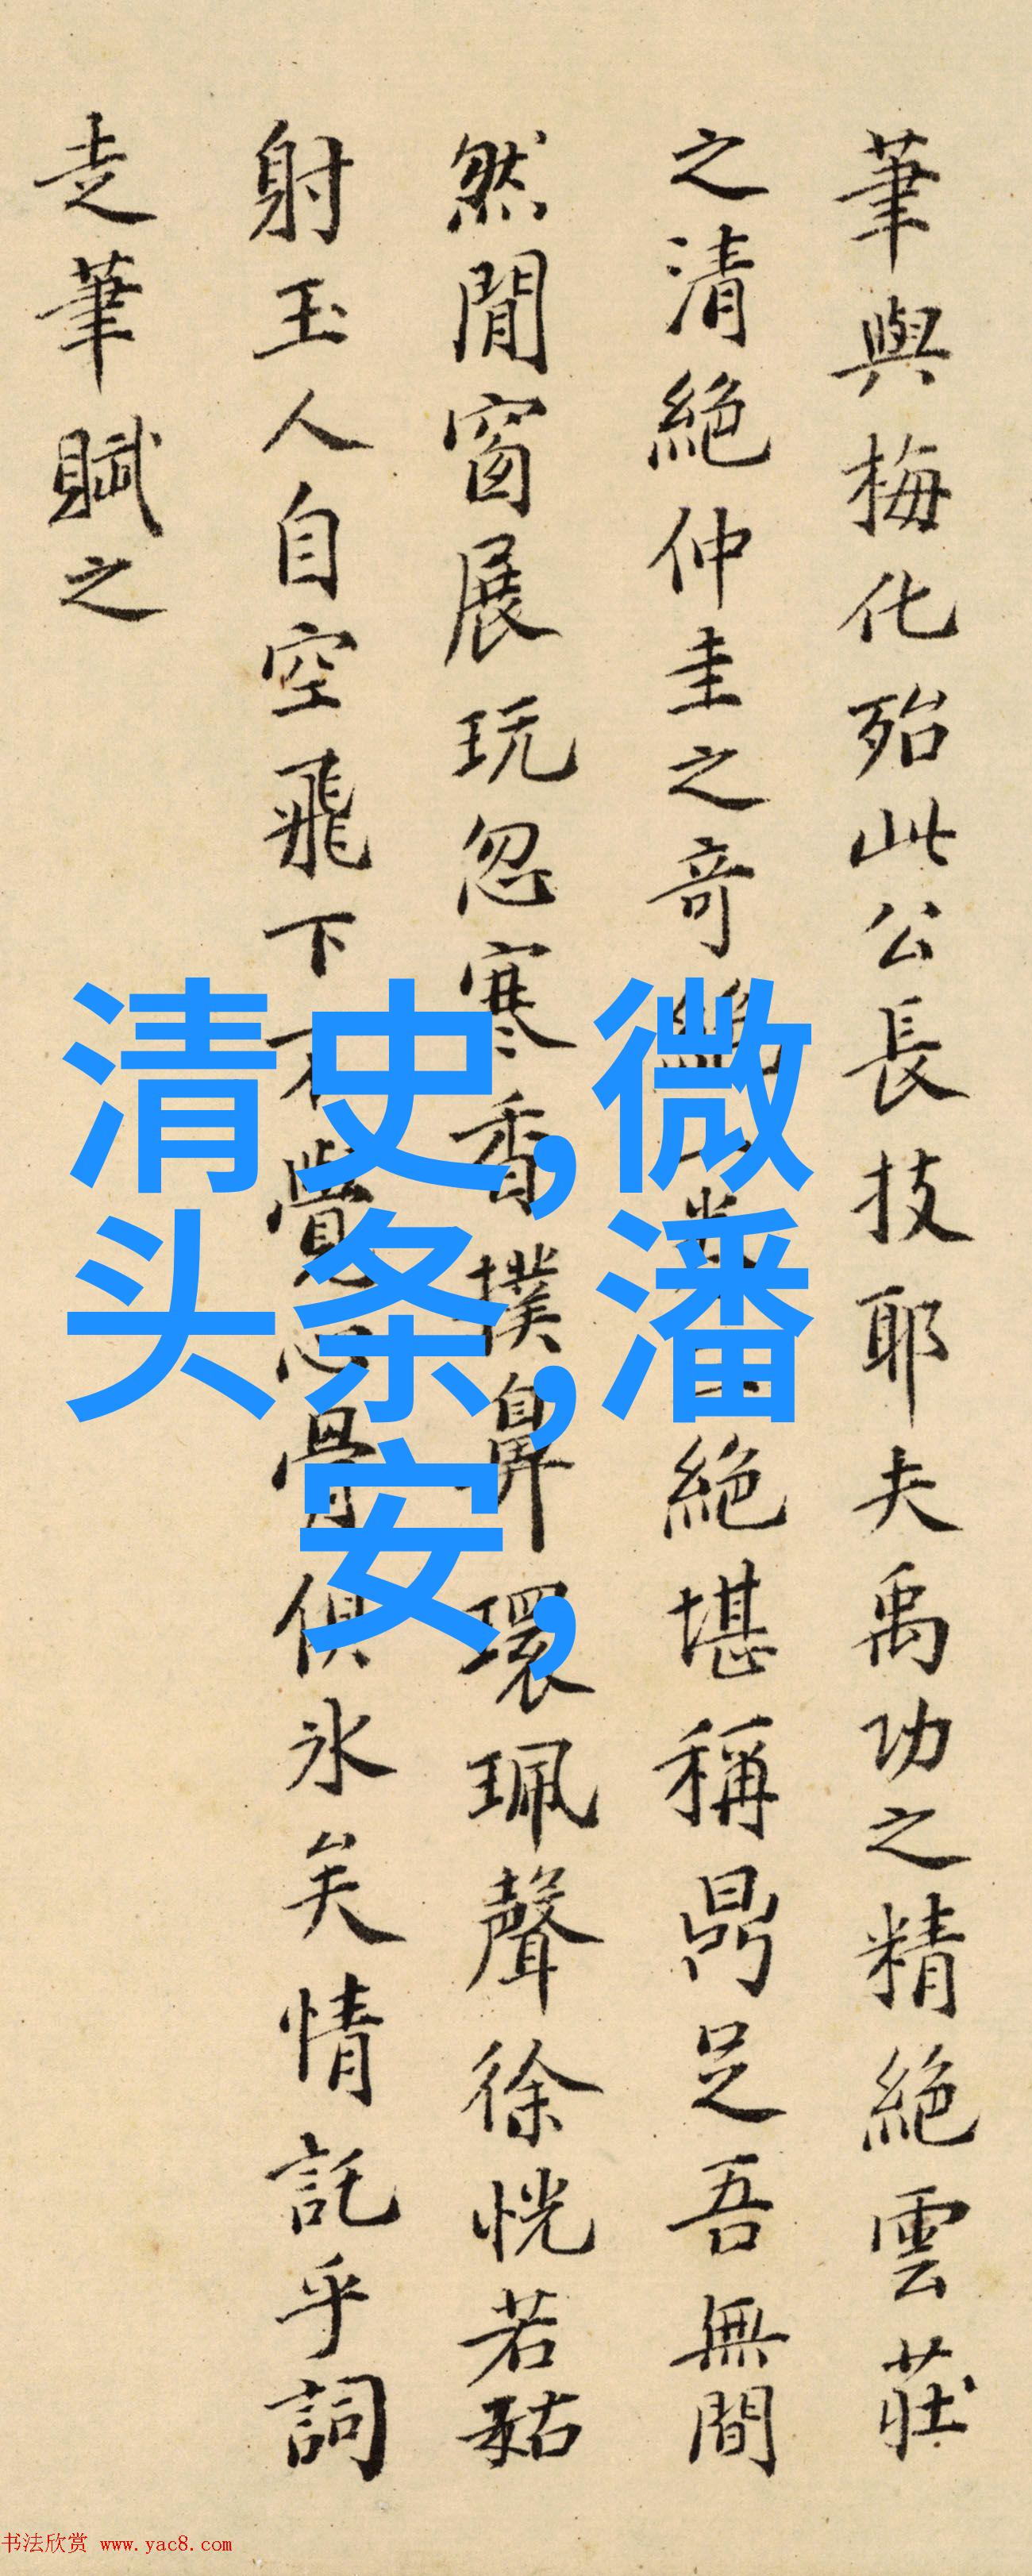 筆與梅化殆此公長技耶夫禹功之精絕雲莊
之清絕仲圭之奇絕絕堪稱鼎足吾無間
然閒窗展玩忽寒香撲鼻環珮聲徐恍若姑
射玉人自空飛下不覺心骨俱冰矣情託乎詞
走筆賦之
清史,微
头条,潘
安,
书法欣赏 www.yac8.com